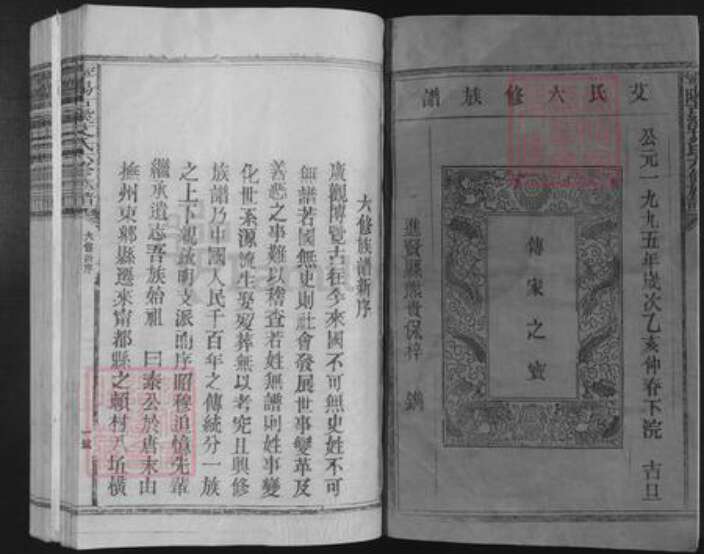 艾氏六修族譜
公元一九九五年歲次乙亥仲春下浣 吉旦
傳家之寶
進賢縣熊貴保梓 鐫
六修族譜新序
廣觀博覽古往今來國不可無史姓不可
無譜若國無史則社會發展世事變革及
善惡之事難以稽查若姓無譜則姓事變
化世系源流生娶歿葬無以考究且興修
族譜乃中國人民千百年之傳統分一族
之上下親疏明支派的序昭穆追憶先輩
繼承遺志吾族始祖 曰泰公於唐末由
撫州東鄉縣遷來甯都縣之賴村八坵橫
六修新序